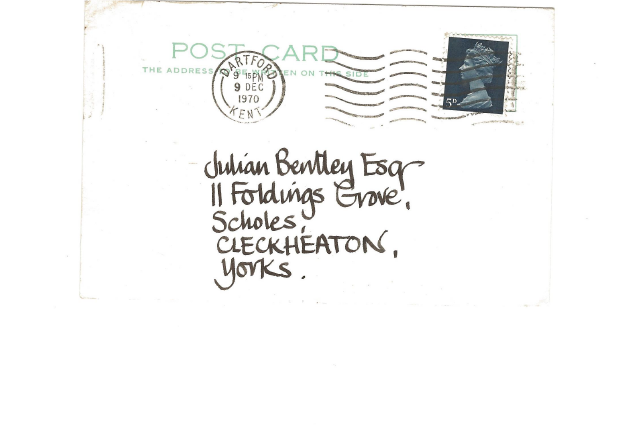 POST CARD
THE ADDRESS TO BE WRITTEN ON THIS SIDE
DARTFORD
9 15 PM
9 DEC
1970
KENT
5D
Julian Bentley Esq
11 Foldings Grove,
Scholes,
CLECKHEATON,
Yorks.